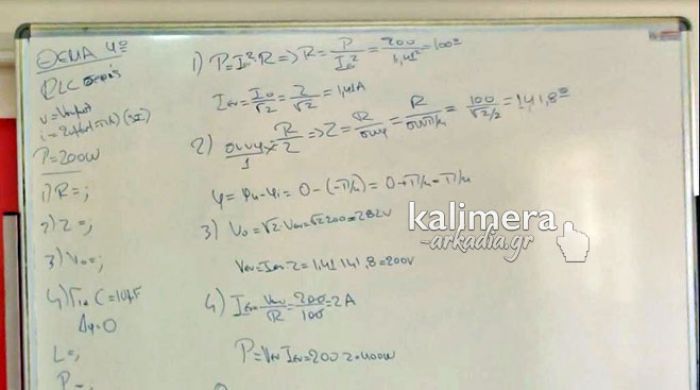 ΘΕΜΑ 4º
RLC σειράς
P=200W
1) R=;
2) Z=;
3) V₀=;
4) Για C=10μF
Δφ=0
L=;
P=;
1) P=Iεν²·R => R = P/Iεν² = 200/1,41² = 100Ω
Iεν = I₀/√2 = 2/√2 = 1,41A
2) συνφ/1 = R/Z => Z = R/συνφ = R/συνπ/4 = 100/√2/2 = 141,8Ω
φ = φu-φi = 0-(-π/4) = 0+π/4=π/4
3) V₀=√2 Vεν=√2 200=282V
Vεν=Iεν·Z=1,41·141,8=200V
4) Iεν=Vεν/R=200/100=2A
P=Vεν Iεν=200·2=400W
kalimera
-arkadia.gr